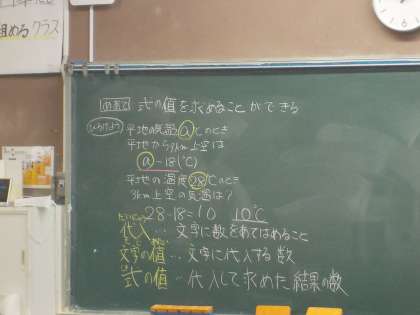 組めるクラス
めあて 式の値を求めることができる
平地の気温a℃のとき
平地から3km上空は
a-18(℃)
平地の温度28℃のとき
3km上空の気温は?
28-18=10 10℃
だいにゅう
代入‥文字に数をあてはめること
文字の値‥文字に代入する数
式の値‥代入して求めた結果の数